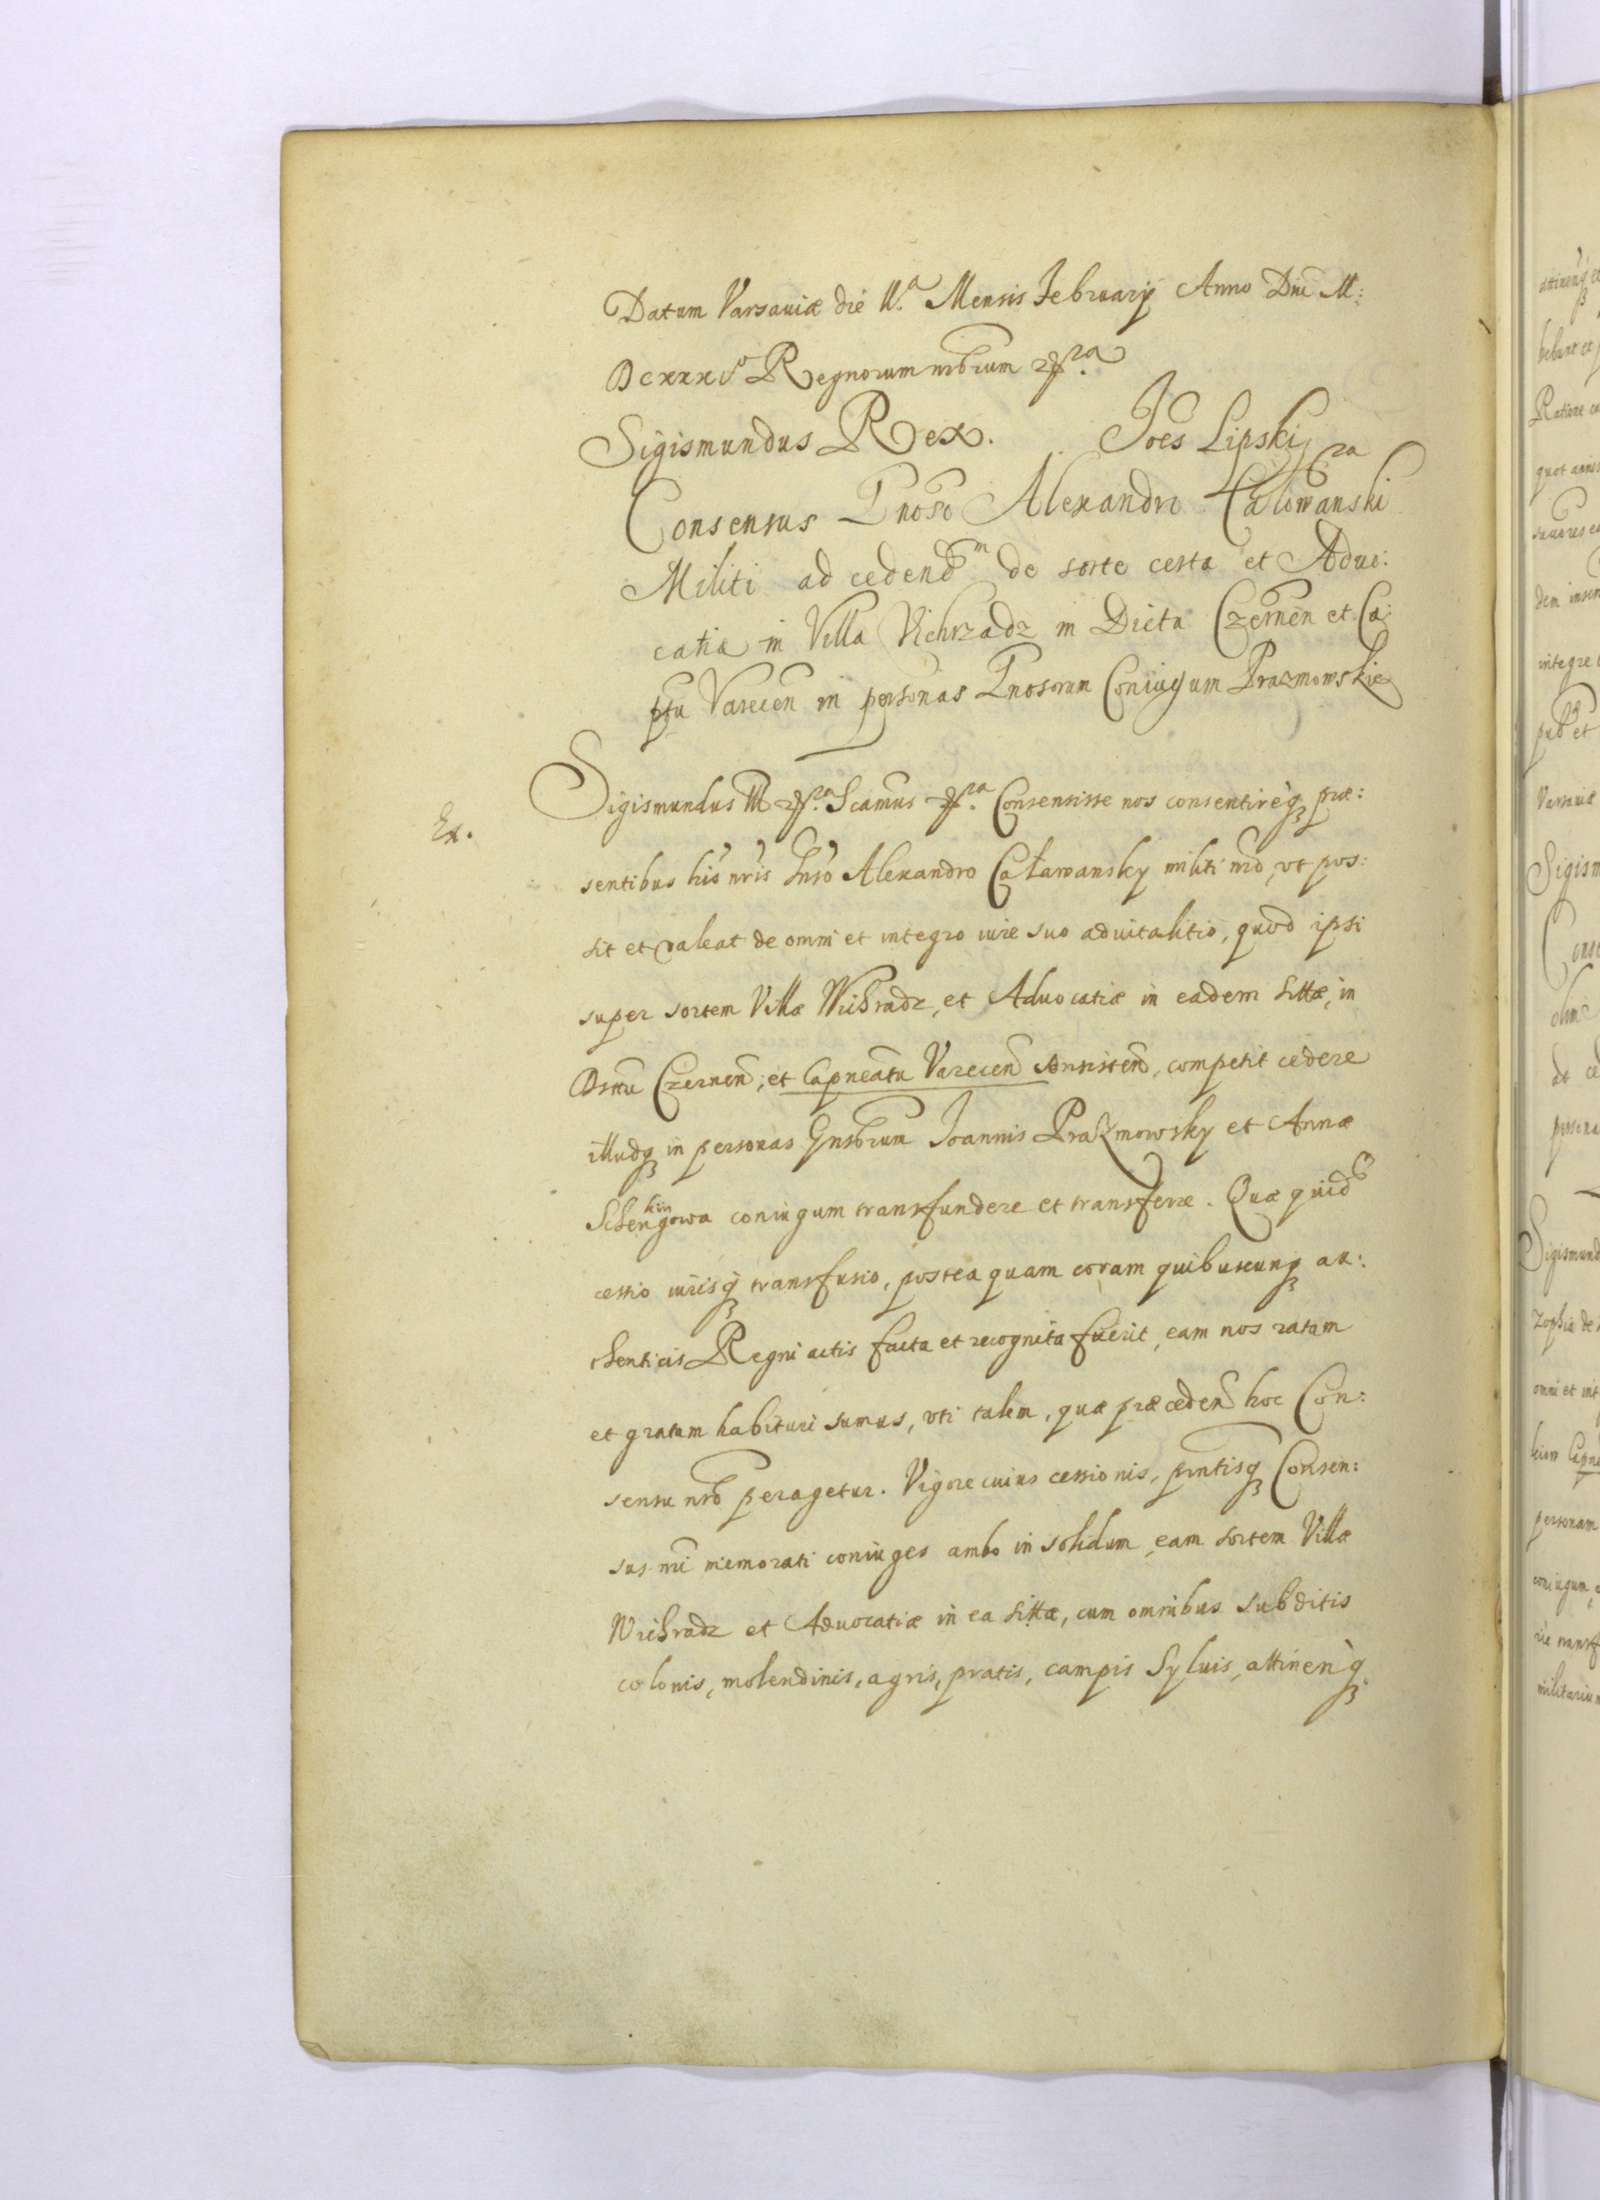 Datum Varsaviæ die II.ª Mensis Februarij Anno Dni M:
DCXXXI.º Regnorum nrorum &.ra
Sigismundus Rex. Joẽs Lipskỹ
Consensus Gnoso Alexandro Całowanski
Militi ad cedendm de sorte certa et Aduo:
catia in Villa Vichrzadz in Dictu Czernen et Ca:
ptu Varecen in personas Gnosorum Coniugum Prazmowskie
Ex.
Sigismundus III &.ra Scamus &.ra Consensisse nos consentireq3 præ:
sentibus his nris Gnso Alexandro Caławansky militi nrô, vt pos:
sit et valeat de omni et integro iure suo aduitalitio, quod ipsi
super sortem Villæ Wichradz, et Aduocatiæ in eadem sittæ, in
Dsttu Czernen, et Capneatu Varecen consisten, competit cedere
illudq3 in personas Gnsorum Joannis Prazmowsky et Annæ
Schenkingowa coniugum transfundere et transferre. Quæ quid
cessio iurisq3 transfusio, postea quam coram quibuscunq3 au:
thenticis Regni actis facta et recognita fuerit, eam nos ratam
et gratam habituri sumus, vti talem, quæ præceden hoc Con:
sensu nrô peragetur. Vigore cuius cessionis, pntisq3 Consen:
sus nri memorati coniuges ambo in solidum, eam sortem Villæ
Wichradz et Aduocatiæ in ea sittæ, cum omnibus subditis
colonis, molendinis, agris, pratis, campis Syluis, attinenq3